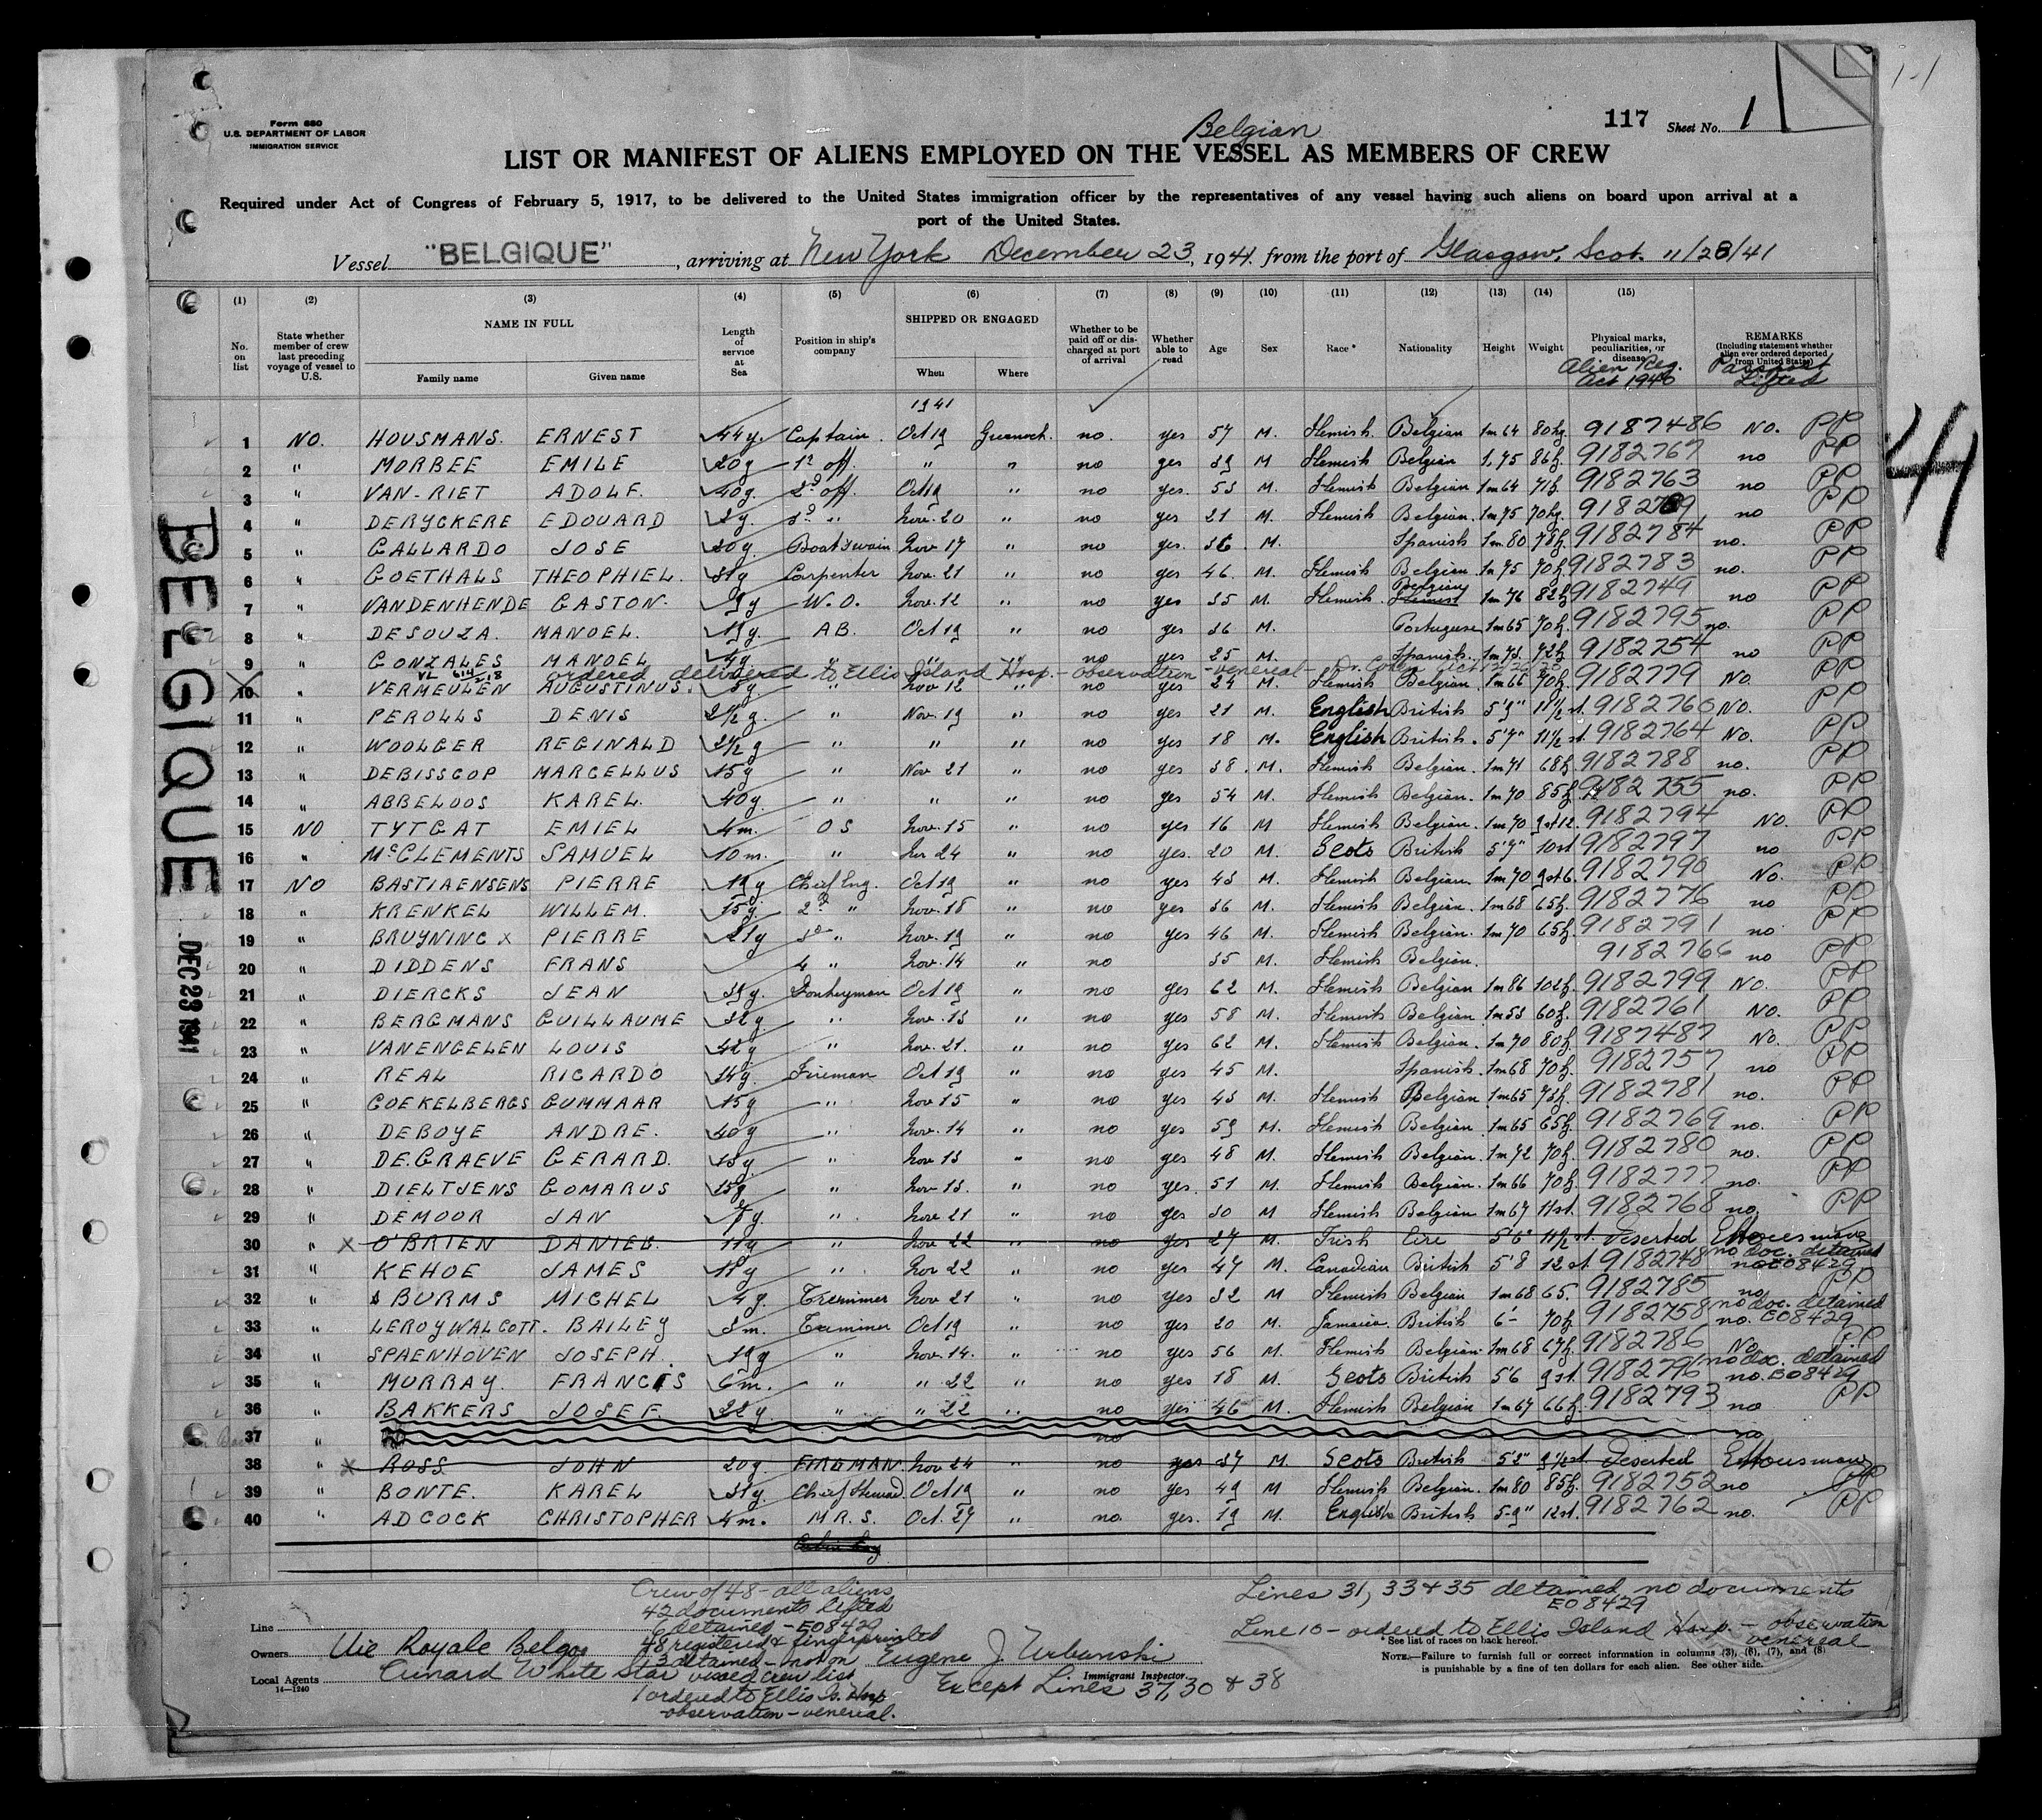 1-1
Form 680
U.S. DEPARTMENT OF LABOR
IMMIGRATION SERVICE
117 Sheet No. 1
Belgian
LIST OR MANIFEST OF ALIENS EMPLOYED ON THE VESSEL AS MEMBERS OF CREW
Required under Act of Congress of February 5, 1917, to be delivered to the United States immigration officer by the representatives of any vessel having such aliens on board upon arrival at a
port of the United States.
Vessel "BELGIQUE", arriving at New York December 23, 1941. from the port of Glasgow, Scot. 11/28/41
(1) (2) (3) (4) (5) (6) (7) (8) (9) (10) (11) (12) (13) (14) (15)
No. on list
State whether member of crew last preceding voyage of vessel to U.S.
NAME IN FULL
Family name Given name
Length of service at Sea
Position in ship's company
SHIPPED OR ENGAGED
When Where
Whether to be paid off or discharged at port of arrival
Whether able to read
Age Sex Race* Nationality Height Weight
Physical marks, peculiarities, or disease
Alien Reg. Act 1940
REMARKS
(Including statement whether alien ever ordered deported from United States)
Passport Lifted
1941
1 NO. HOUSMANS. ERNEST 44y. Captain. Oct 19 Greenock. no. yes 57 M. Flemish. Belgian 1m64 80kg. 9187486 NO. PP
2 " MORBEE EMILE 20y 1º off. " " no yes 39 M Flemish Belgian 1.75 86k. 9182767 no PP
3 " VAN-RIET ADOLF. 40y. 2º off. Oct 19 " no yes. 53 M. Flemish Belgian 1m64 71k. 9182763 no PP
4 " DERYCKERE EDOUARD 2y. 3º " Nov. 20 " no yes 21 M. Flemish Belgian. 1m75 70kg. 9182789 no PP
5 " GALLARDO JOSE 20y. Boatswain Nov 17 " no yes. 36. M. Spanish 1m.80 78k. 9182784 no. PP
6 " GOETHALS THEOPHIEL. 31y Carpenter Nov. 21 " no yes 46. M. Flemish Belgian 1m75 70k. 9182783 no. PP
7 " VANDENHENDE GASTON. 9y W.O. Nov. 12 " no yes 35 M. Flemish. Belgian 1m76 82k 9182749 no PP
8 " DESOUZA. MANOEL. 19y. AB. Oct 19 " no yes 36 M. Portuguese 1m65 70k. 9182795 no. PP
9 " GONZALES MANOEL 4y. " " " no yes 25 M. Spanish. 1m73. 72k 9182754 no PP
ordered delivered to Ellis Island Hosp. - observation - venereal -
10 " VERMEULEN AUGUSTINUS. 5y. " Nov 12 " no yes 24 M. Flemish. Belgian. 1m66 70k. 9182779 NO. PP
11 " PEROLLS DENIS 2 1/2 y. " Nov. 19 " no yes 21 M. English British 5'9" 11 1/2 st. 9182760 NO. PP
12 " WOOLGER REGINALD 2 1/2 y " " " no yes 18 M. English British. 5'7" 11 1/2 st. 9182764 NO. PP
13 " DEBISSCOP MARCELLUS 15y " Nov 21 " no yes 38. M. Flemish Belgian. 1m71 68k. 9182788 no. PP
14 " ABBELOOS KAREL. 40y. " " " no yes 54 M. Flemish Belgian. 1m70 85k. 9182755 no. PP
15 NO TYTGAT EMIEL 4m. OS Nov. 15 " no yes 16 M Flemish Belgian. 1m70 9st12. 9182794 NO. PP
16 " McCLEMENTS SAMUEL 10m. " Nov 24 " no yes. 20 M. Scots British 5'7" 10st 9182797 no PP
17 NO BASTIAENSENS PIERRE 19y Chief Eng. Oct 19 " no yes 43 M. Flemish. Belgian. 1m70 9st6. 9182790 NO. PP
18 " KRENKEL WILLEM. 15y. 2º " Nov. 18 " no yes 36 M. Flemish Belgian. 1m68 65k. 9182776 no PP
19 " BRUYNINCX PIERRE 21y 3º " Nov. 19 " no yes 46 M. Flemish Belgian. 1m70 65k. 9182791 no PP
20 " DIDDENS FRANS 4 " Nov. 14 " no 35 M. Flemish Belgian. 9182766 no PP
21 " DIERCKS JEAN 35y. Donkeyman Oct 19 " no yes 62 M. Flemish Belgian 1m86 102k. 9182799 NO. PP
22 " BERGMANS GUILLAUME 32y " Nov. 13 " no yes 58 M. Flemish Belgian 1m53 60k. 9182761 NO. PP
23 " VANENGELEN LOUIS 42y " Nov. 21. " no yes 62 M. Flemish Belgian. 1m70 80k. 9187487 NO. PP
24 " REAL RICARDO 14y. Fireman Oct 19 " no yes 45 M. Spanish. 1m68 70k. 9182757 no PP
25 " GOEKELBERGS GUMMAAR 15y " Nov 15 " no yes 43 M. Flemish Belgian 1m65 73k. 9182781 no. PP
26 " DEBOYE ANDRE. 40y " Nov. 14 " no yes 59 M. Flemish Belgian. 1m65 65k. 9182769 no. PP
27 " DE.GRAEVE GERARD. 15y " Nov 13 " no yes 48 M. Flemish Belgian. 1m72 70k. 9182780 no. PP
28 " DIELTJENS GOMARUS 15y " Nov. 13. " no yes. 51 M. Flemish Belgian. 1m66 70k. 9182777 no. PP
29 " DEMOOR JAN y. " Nov 21 " no yes 30 M Flemish Belgian 1m67 11st. 9182768 no. PP
30 " X O'BRIEN DANIEL. 11y " Nov 22 " no yes 27 M. Irish Eire 5'6" 11 1/2 st. Deserted EHousman
31 " KEHOE JAMES 18y " Nov 22 " no yes 47 M. Canadian British 5'8 12 st. 9182748 no doc. detained no E08429
32 " BURMS MICHEL 4y. Tremmer Nov. 21 " no yes 32 M Flemish Belgian 1m68 65. 9182785 no PP
33 " LEROY WALCOTT. BAILEY 3m. Trimmer Oct 19 " no yes 20 M. Jamaica. British 6'- 70k. 9182758 no doc. detained no. E08429
34 " SPAENHOVEN JOSEPH. 19y " Nov. 14. " no yes 56 M. Flemish Belgian 1m68 67k. 9182786 No PP
35 " MURRAY. FRANCIS 6m. " " 22 " no yes 18 M. Scots British 5'6 9st. 9182796 no doc. detained no. E08429
36 " BAKKERS JOSEF. 22y. " " 22 " no yes 46 M. Flemish Belgian 1m67 66k. 9182793 no PP
37 " no no
38 " X ROSS JOHN 20y. FIREMAN. Nov 24 " no yes 37 M. Scots British 5'2" 9 1/2 st Deserted EHousman
39 " BONTE. KAREL 31y. Chief Steward. Oct 19 " no yes 49 M Flemish Belgian. 1m80 85k. 9182752 no PP
40 " ADCOCK CHRISTOPHER 4m. M.R.S. Oct. 27 " no yes. 19 M. English British 5-9" 12st. 9182762 no. PP
Cabin boy
BELGIQUE
DEC 23 1941
Crew of 48 - all aliens
42 documents lifted
6 detained - E08429
48 registered & fingerprinted
3 detained - not on
vised crew list
1 ordered to Ellis Is. Hosp
- observation - venereal.
Line
Owners Cie Royale Belgo
Local Agents Cunard White Star
14-1240
Eugene J Urbanski
Immigrant Inspector.
Except Lines 37, 30 & 38
Lines 31, 33 & 35 detained no documents
E08429
Line 10 - ordered to Ellis Island Hosp. - observation
venereal
*See list of races on back hereof.
NOTE.—Failure to furnish full or correct information in columns (3), (6), (7), and (8)
is punishable by a fine of ten dollars for each alien. See other side.